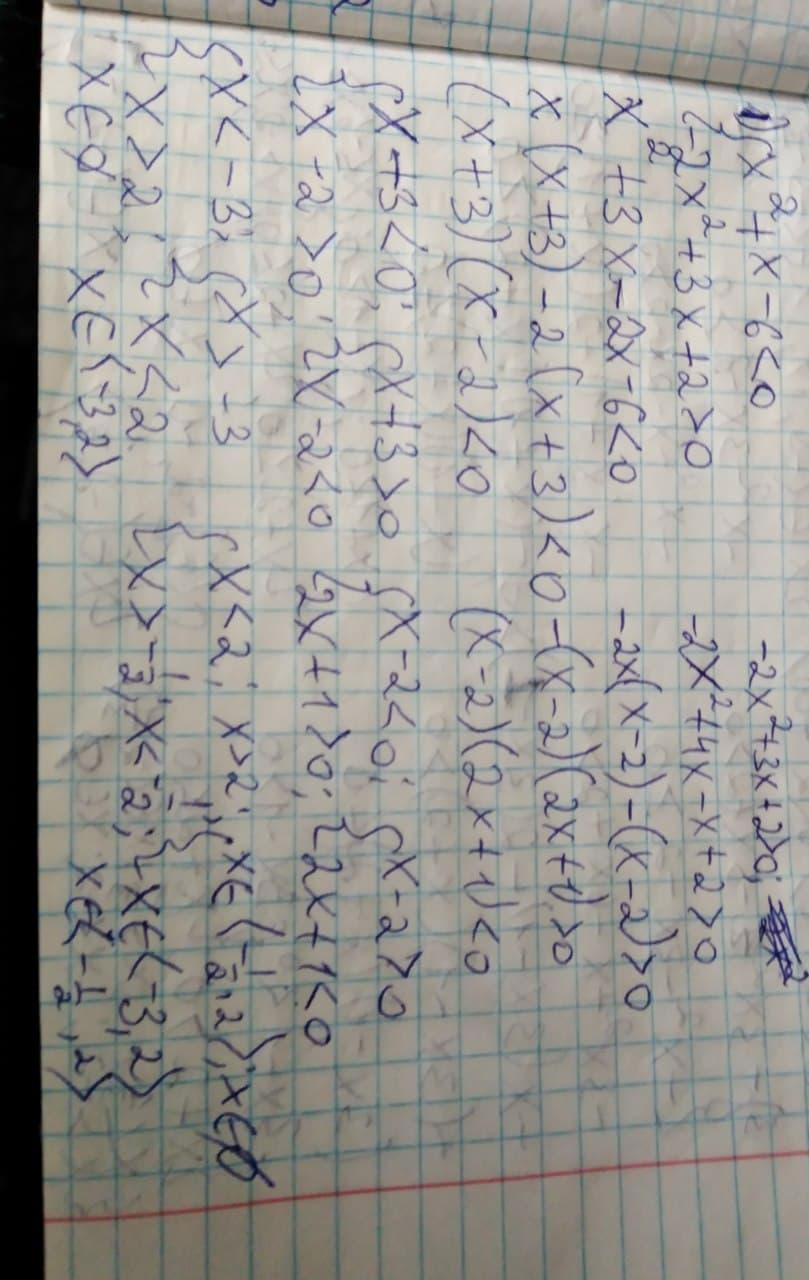 1) { x² + x - 6 < 0
{ -2x² + 3x + 2 > 0
x² + 3x - 2x - 6 < 0
x (x + 3) - 2 (x + 3) < 0
(x + 3) (x - 2) < 0
{ x + 3 < 0; { x + 3 > 0
{ x - 2 > 0; { x - 2 < 0
{ x < -3; { x > -3
{ x > 2; { x < 2
x ∈ ∅ x ∈ ⟨-3, 2⟩
-2x² + 3x + 2 > 0;
-2x² + 4x - x + 2 > 0
-2x (x - 2) - (x - 2) > 0
-(x - 2) (2x + 1) > 0
(x - 2) (2x + 1) < 0
{ x - 2 < 0; { x - 2 > 0
{ 2x + 1 > 0; { 2x + 1 < 0
{ x < 2; x > 2; { x ∈ ⟨-1/2, 2⟩; x ∈ ∅
{ x > -1/2; x < -1/2; { x ∈ ⟨-3, 2⟩
x ∈ ⟨-1/2, 2⟩